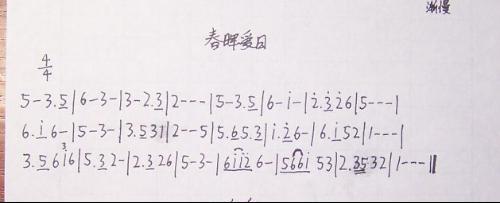 渐慢
春晖爱日
4/4
5-3.5|6-3-|3-2.3|2---|5-3.5|6-i-|i2.3i26|5---|
6.i6-|5-3-|3.531|2--5|5.65.3|i.26-|6.i52|1---|
3.56i6|5.32-|2.326|5-3-|6iii26-|566i53|2.3532|1---||